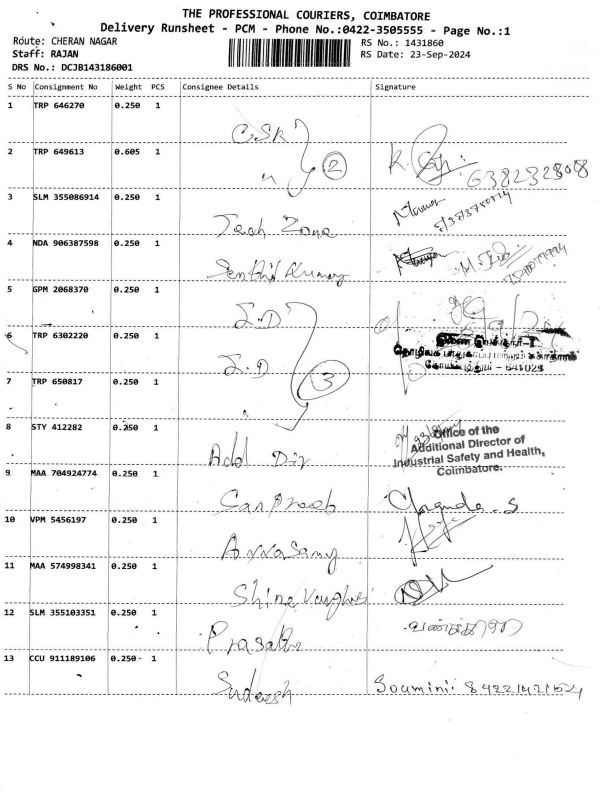 THE PROFESSIONAL COURIERS, COIMBATORE
Delivery Runsheet - PCM - Phone No.:0422-3505555 - Page No.:1
Route: CHERAN NAGAR RS No.: 1431860
Staff: RAJAN RS Date: 23-Sep-2024
DRS No.: DCJB143186001
S No Consignment No Weight PCS Consignee Details Signature
1 TRP 646270 0.250 1
CSR
2 TRP 649613 0.605 1
2
3 SLM 355086914 0.250 1
Tech Zone
4 NDA 906387598 0.250 1
Senthil Kumar
5 GPM 2068370 0.250 1
I.D
6 TRP 6302220 0.250 1
I.D
3
கோயம்புத்தூர் - 641023
7 TRP 650817 0.250 1
8 STY 412282 0.250 1
Add Dir
Office of the
Additional Director of
Industrial Safety and Health,
Coimbatore.
9 MAA 704924774 0.250 1
10 VPM 5456197 0.250 1
Annasamy
11 MAA 574998341 0.250 1
Shine Varghese
12 SLM 355103351 0.250 1
Prasath
13 CCU 911189106 0.250 1
Sudeesh Soumini: